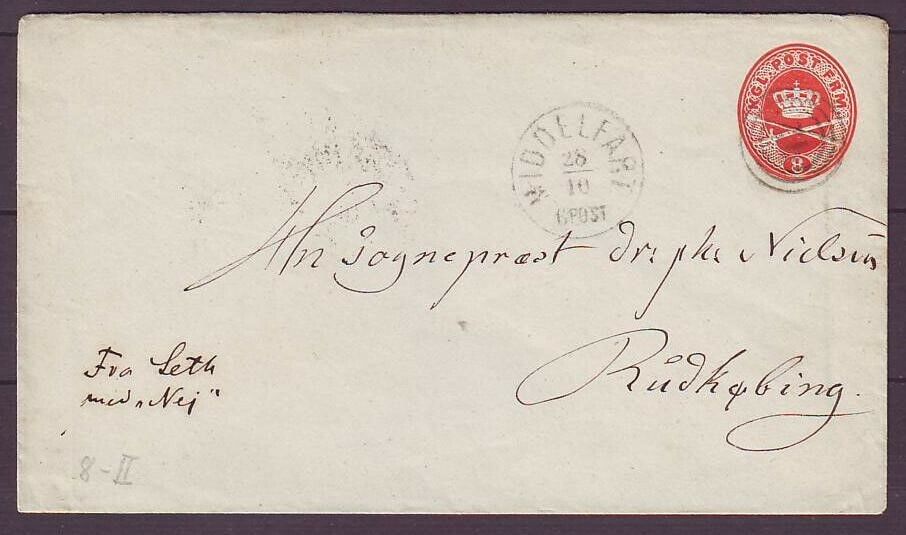 KGL POST FRM
8
MIDDELFART
28
10
6POST
Hn Sognepræst Dr: ph: Nielsen
Rudkøbing.
Fra Seth
med „Nej"
8-II